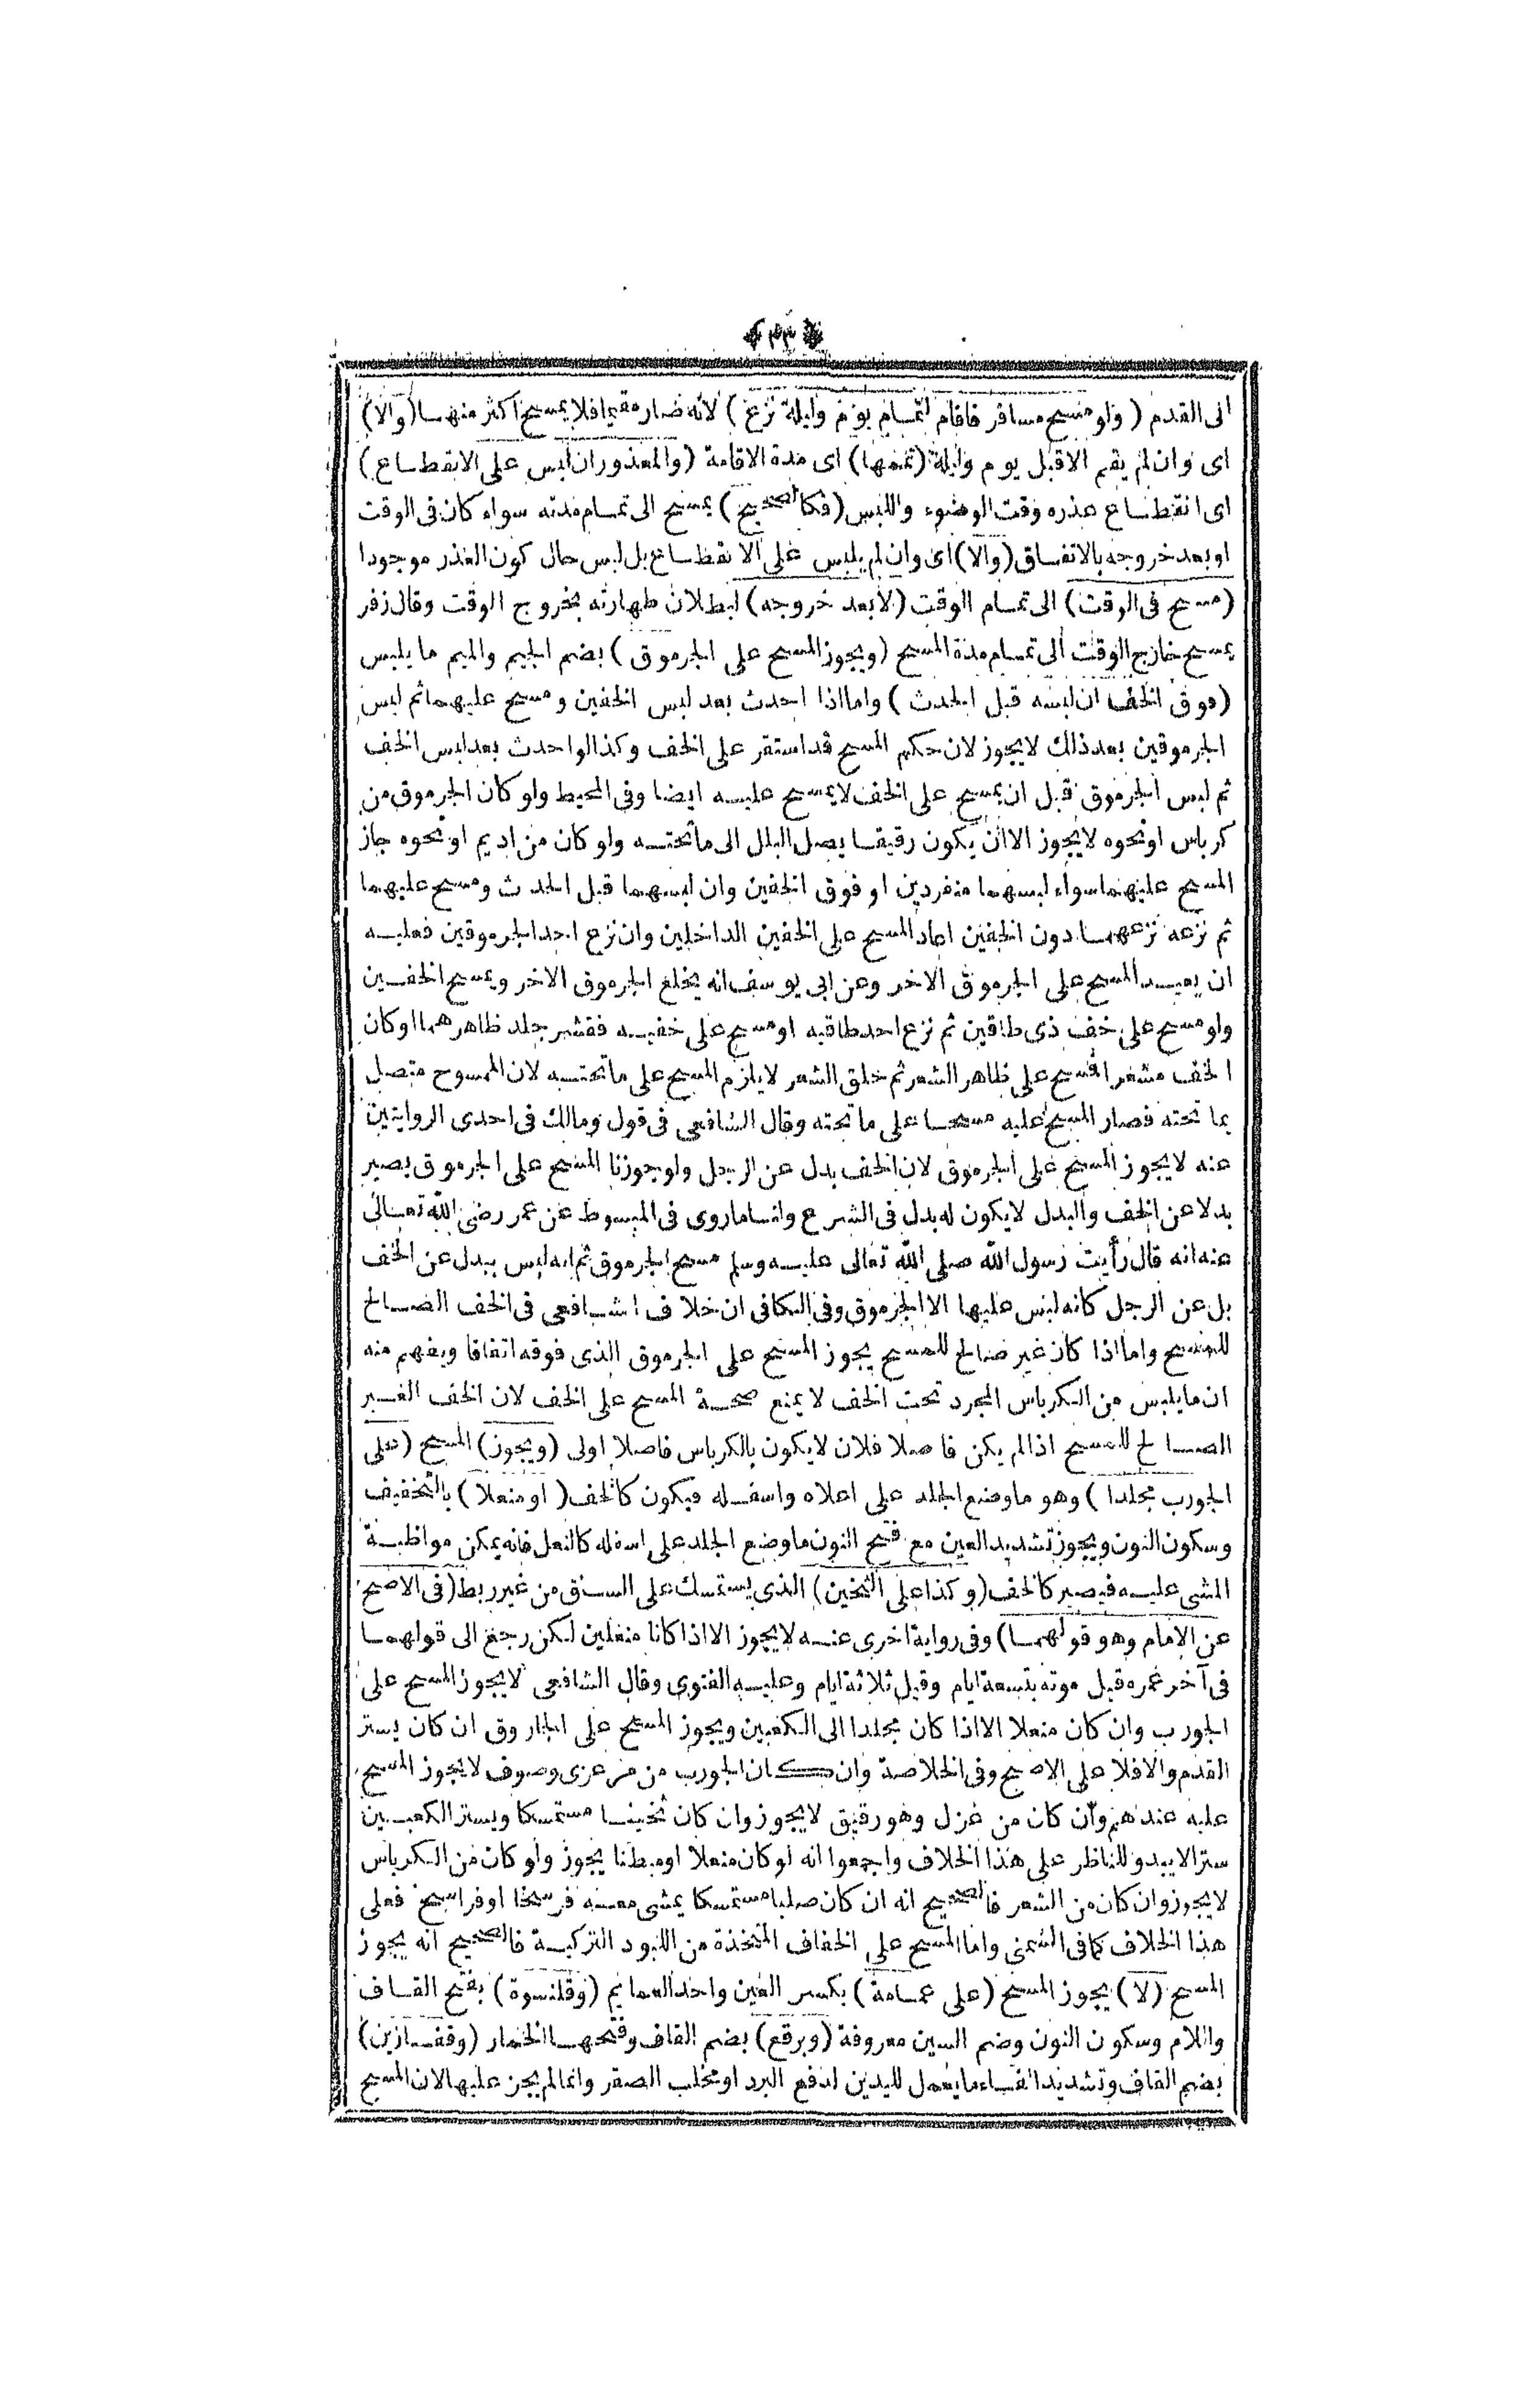 ﴿ ٣٣ ﴾
الى القدم ( ولو مسح مسافر فاقام لتمام يوم وليلة نزع ) لانه صار مقيما فلا يمسح اكثر منهما (والا)
اى وان لم يقم الاقبل يوم وليلة (تممها) اى مدة الاقامة (والمعذور ان لبس على الانقطاع)
اى انقطاع عذره وقت الوضوء واللبس (فكالصحيح) يمسح الى تمام مدته سواء كان فى الوقت
اوبعد خروجه بالاتفاق (والا) اى وان لم يلبس على الانقطاع بل لبس حال كون العذر موجودا
(مسح فى الوقت) الى تمام الوقت (لا بعد خروجه) لبطلان طهارته بخروج الوقت وقال زفر
يمسح خارج الوقت الى تمام مدة المسح (ويجوز المسح على الجرموق) بضم الجيم والميم ما يلبس
(فوق الخف ان لبسه قبل الحدث ) واما اذا احدث بعد لبس الخفين ومسح عليهما ثم لبس
الجرموقين بعد ذلك لايجوز لان حكم المسح قد استقر على الخف وكذا لو احدث بعد لبس الخف
ثم لبس الجرموق قبل ان يمسح على الخف لايمسح عليه ايضا وفى المحيط ولو كان الجرموق من
كرباس اونحوه لايجوز الا ان يكون رقيقا يصل البلل الى ماتحته ولو كان من اديم اونحوه جاز
المسح عليهما سواء لبسهما منفردين او فوق الخفين وان لبسهما قبل الحدث ومسح عليهما
ثم نزعه نزعهما دون الخفين اعاد المسح على الخفين الداخلين وان نزع احد الجرموقين فعليه
ان يعيد المسح على الجرموق الاخر وعن ابى يوسف انه يخلع الجرموق الاخر ويمسح الخفين
ولو مسح على خف ذى طاقين ثم نزع احد طاقيه او مسح على خفيه فقشر جلد ظاهرهما او كان
الخف مشعرا فمسح على ظاهر الشعر ثم حلق الشعر لايلزم المسح على ماتحته لان الممسوح متصل
بما تحته فصار المسح عليه مسحا على ما تحته وقال الشافعى فى قول ومالك فى احدى الروايتين
عنه لايجوز المسح على الجرموق لان الخف بدل عن الرجل ولوجوزنا المسح على الجرموق يصير
بدلا عن الخف والبدل لايكون له بدل فى الشرع ولنا ماروى فى المبسوط عن عمر رضى الله تعالى
عنه انه قال رأيت رسول الله صلى الله تعالى عليه وسلم مسح الجرموق ثم انه ليس ببدل عن الخف
بل عن الرجل كانه لبس عليها الا الجرموق وفى الكافى ان خلاف اشافعى فى الخف الصالح
للمسح واما اذا كان غير صالح للمسح يجوز المسح على الجرموق الذى فوقه اتفاقا ويفهم منه
ان ما يلبس من الكرباس المجرد تحت الخف لا يمنع صحة المسح على الخف لان الخف الغير
الصالح للمسح اذا لم يكن فاصلا فلان لايكون بالكرباس فاصلا اولى (ويجوز) المسح (على
الجورب مجلدا ) وهو ماوضع الجلد على اعلاه واسفله فيكون كالخف ( اومنعلا ) بالتخفيف
وسكون النون ويجوز تشديد العين مع فتح النون ماوضع الجلد على اسفله كالنعل فانه يمكن مواظبة
المشى عليه فيصير كالخف (وكذا على الثخين) الذى يستمسك على الساق من غير ربط (فى الاصح
عن الامام وهو قولهما) وفى رواية اخرى عنه لايجوز الا اذا كانا منعلين لكن رجع الى قولهما
فى آخر عمره قبل موته بتسعة ايام وقيل ثلاثة ايام وعليه الفتوى وقال الشافعى لايجوز المسح على
الجورب وان كان منعلا الا اذا كان مجلدا الى الكعبين ويجوز المسح على الجاروق ان كان يستر
القدم والا فلا على الاصح وفى الخلاصة وان كان الجورب من مرعزى وصوف لايجوز المسح
عليه عندهم وان كان من غزل وهو رقيق لايجوز وان كان ثخينا مستمسكا ويستر الكعبين
سترا لايبدو للناظر على هذا الخلاف واجمعوا انه لو كان منعلا اومبطنا يجوز ولو كان من الكرباس
لايجوز وان كان من الشعر فالصحيح انه ان كان صلبا مستمسكا يمشى معه فرسخا اوفراسخ فعلى
هذا الخلاف كما فى الشمنى واما المسح على الخفاف المتخذة من اللبود التركية فالصحيح انه يجوز
المسح (لا) يجوز المسح (على عمامة) بكسر العين واحد العمايم (وقلنسوة) بفتح القاف
واللام وسكون النون وضم السين معروفة (وبرقع) بضم القاف وفتحها الخمار (وقفازين)
بضم القاف وتشديد الفاء مايعمل لليدين لدفع البرد اومخلب الصقر وانما لم يجز عليها لان المسح